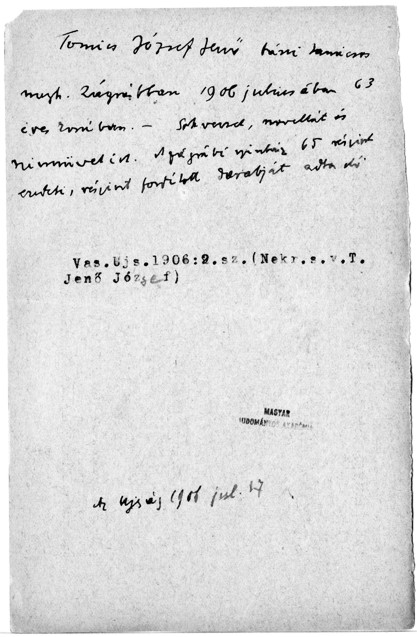 Tomics József Jenő házi tanácsos
megh. Zágrábban 1906 juliusában 63
éves korában. – Sok verset, novellát és
színművet írt. A zágrábi színház 65 részint
eredeti, részint fordított darabját adta elő
Vas.Ujs.1906:2.sz.(Nekr.s.v.T.
Jenő József)
MAGYAR
TUDOMÁNYOS AKADÉMIA
Az Ujság 1906 jul. 17